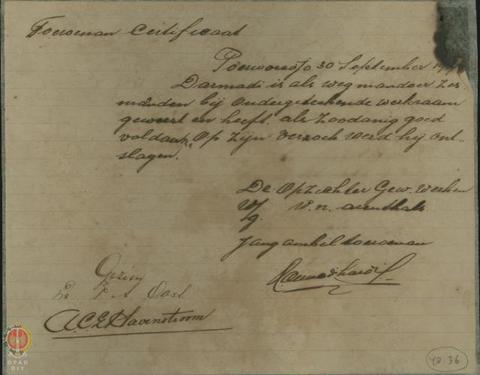 Toeroenan Certificaat
Poerworedjo 30 September
Darmadi is als wegmandoer zes
maanden bij Ondergeteekende werkzaam
geweest en heeft als zoodanig goed
voldaan, Op zijn verzoek werd hij ont-
slagen.
De Opzichter Gew. Werken
W/g.
Jang ambil toeroenan
Gezien
A.C.E. Havenstroom
BPAD
DIY
10.36